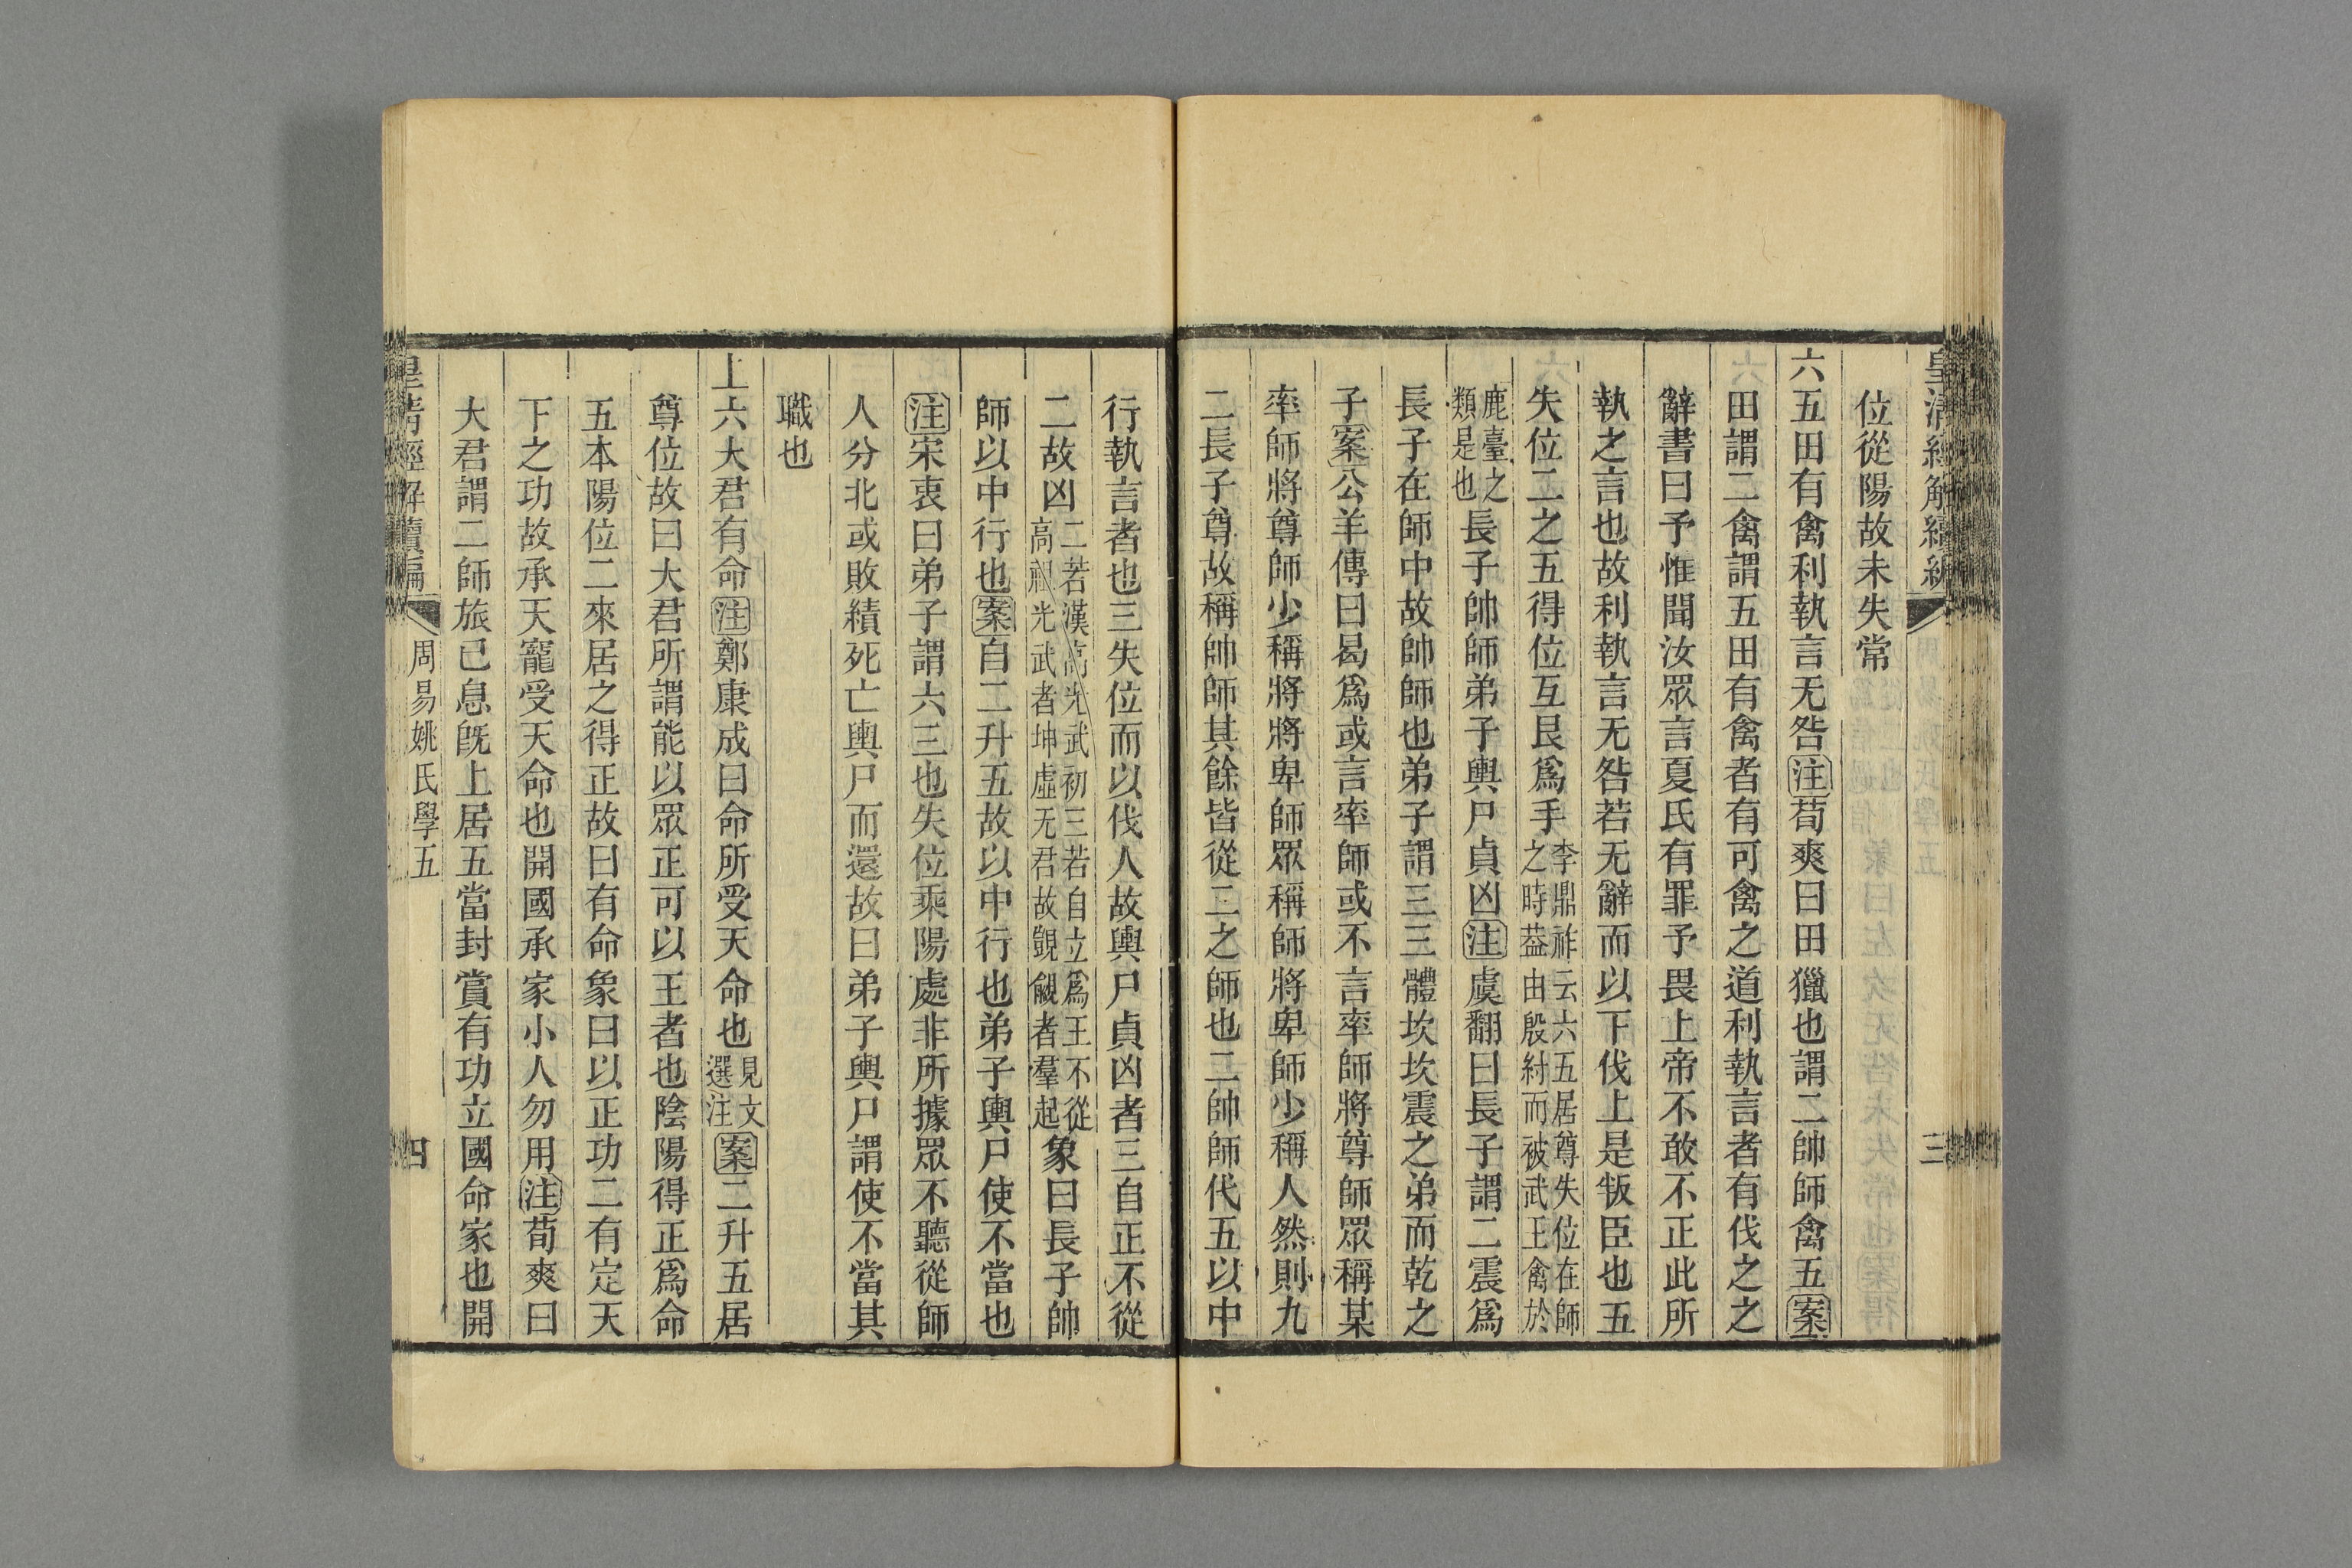 皇清經解續編
三
位從陽故未失常
六五田有禽利執言无咎注荀爽曰田獵也謂二帥師禽五案
田謂二禽謂五田有禽者有可禽之道利執言者有伐之之
辭書曰予惟聞汝眾言夏氏有罪予畏上帝不敢不正此所
執之言也故利執言无咎若无辭而以下伐上是叛臣也五
失位二之五得位互艮爲手李鼎祚云六五居尊失位在師之時葢由殷紂而被武王禽於
鹿臺之類是也長子帥師弟子輿尸貞凶注虞翻曰長子謂二震爲
長子在師中故帥師也弟子謂三三體坎坎震之弟而乾之
子案公羊傳曰曷爲或言率師或不言率師將尊師眾稱某
率師將尊師少稱將將卑師眾稱師將卑師少稱人然則九
二長子尊故稱帥師其餘皆從二之師也二帥師代五以中
行執言者也三失位而以伐人故輿尸貞凶者三自正不從
二故凶二若漢高光武初三若自立爲王不從高祖光武者坤虛无君故覬覦者羣起象曰長子帥
師以中行也案自二升五故以中行也弟子輿尸使不當也
注宋衷曰弟子謂六三也失位乘陽處非所據眾不聽從師
人分北或敗績死亡輿尸而還故曰弟子輿尸謂使不當其
職也
上六大君有命注鄭康成曰命所受天命也見文選注案二升五居
尊位故曰大君所謂能以眾正可以王者也陰陽得正爲命
五本陽位二來居之得正故曰有命象曰以正功二有定天
下之功故承天寵受天命也開國承家小人勿用注荀爽曰
大君謂二師旅已息旣上居五當封賞有功立國命家也開
皇清經解續編
周易姚氏學五
四